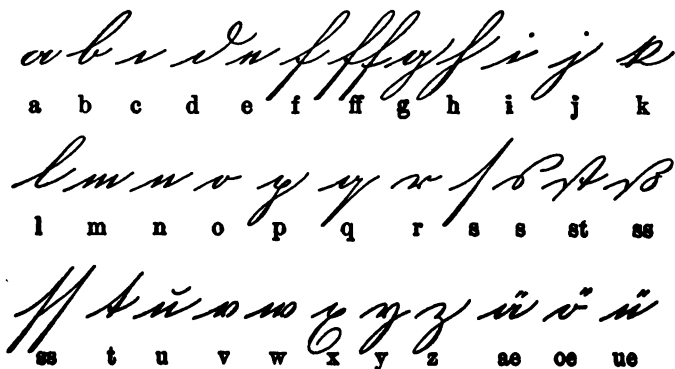 a b c d e f ff g h i j k
a b c d e f ff g h i j k
l m n o p q r ſ s st ß
l m n o p q r s s st ss
ſſ t ŭ v w x y z ä ö ü
ss t u v w x y z ae oe ue